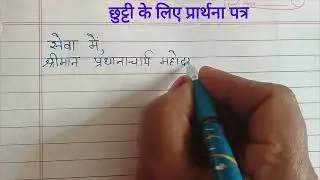 छुट्टी के लिए प्रार्थना पत्र
सेवा में,
श्रीमान प्रधानाचार्य महोदर